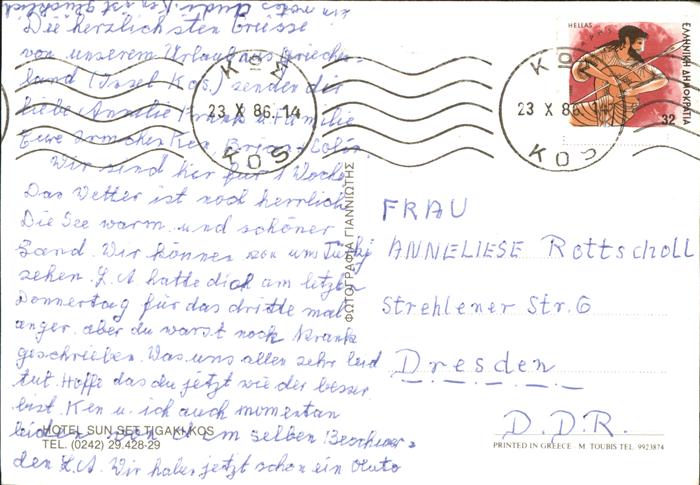 Die herzlichsten Grüsse
von unserem Urlaub aus Griechen-
land (Insel Kos.) senden dir
liebe Annelie Frank & Familie
Eure Irmchen Ken, Brian & Colin
Wir sind her für 1 Woche
Das Vetter ist noch herrlich
Die See warm und schöner
Sand. Wir können von um Türkij
sehen. L. A hatte dich am letzten
Donnertag für das dritte mal
anger. aber du warst noch Krank
geschrieben. Was uns allen sehr leid
tut. Hoffe das du jetzt wieder besser
bist. Ken u. ich auch momentan
leider von dem selben Beschwer-
den L. A. Wir haben jetzt schon ein Auto
HOTEL SUN SET TIGAKI-KOS
TEL. (0242) 29.428-29
ΦΩΤΟΓΡΑΦΙΑ ΓΙΑΝΝΙΩΤΗΣ
HELLAS
ΕΛΛΗΝΙΚΗ ΔΗΜΟΚΡΑΤΙΑ
32
ΚΩΣ
23 X 86.14
KOS
ΚΩΣ
23 X 86.14
KOS
FRAU
ANNELIESE Rottscholl
Strehlener Str. 6
Dresden
D.D.R.
PRINTED IN GREECE M TOUBIS TEL 9923874